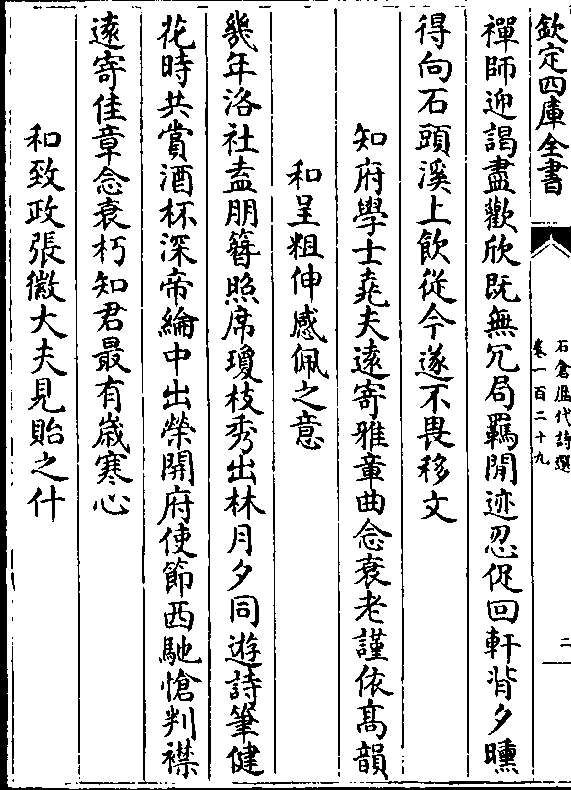 欽定四庫全書
石倉歴代詩選
卷一百二十九
二
禪師迎謁盡歡欣既無冗局羈閒迹忍促回軒背夕曛
得向石頭溪上飲從今遂不畏移文
知府學士堯夫遠寄雅章曲念衰老謹依髙韻
和呈粗伸感佩之意
幾年洛社盍朋簪照席瓊枝秀出林月夕同遊詩筆健
花時共賞酒杯深帝綸中出榮開府使節西馳愴判襟
遠寄佳章念衰朽知君最有歳寒心
和致政張徽大夫見貽之什